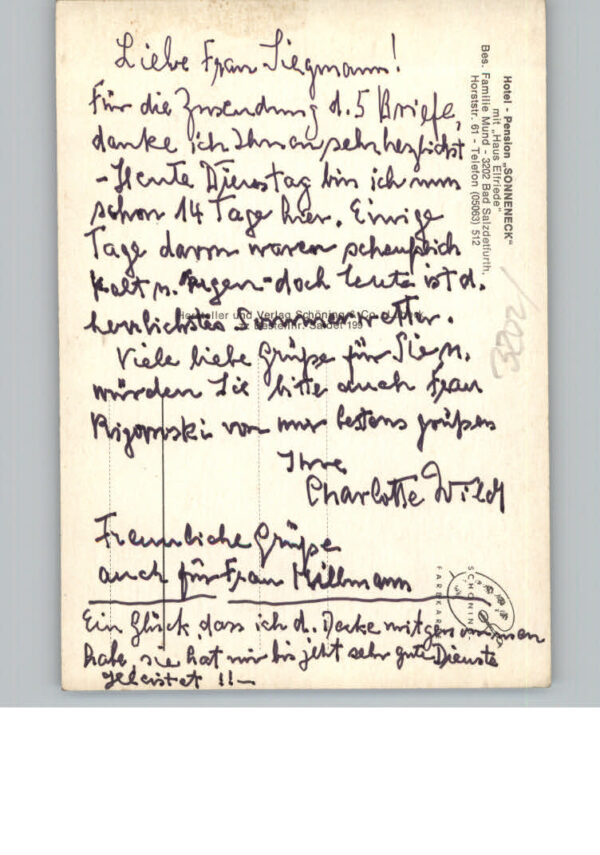 Liebe Frau Siegmann!
Für die Zusendung d. 5 Briefe,
danke ich Ihnen sehr herzlichst
- Heute Dienstag bin ich nun
schon 14 Tage hier. Einige
Tage davon waren scheußlich
kalt u. Regen - doch heute ist d.
herrlichstes Sommerwetter.
Viele liebe Grüße für Sie u.
würden Sie bitte auch Frau
von mir bestens grüßen
Ihre
Charlotte Wild
Freundliche Grüße
auch für Frau Hillmann
Ein Glück, dass ich d. Decke mitgenommen
habe, sie hat mir bis jetzt sehr gute Dienste
geleistet !! -
Hotel - Pension „SONNENECK"
mit „Haus Elfriede"
Bes. Familie Mund - 3202 Bad Salzdetfurth,
Horststr. 61 - Telefon (05063) 512
Hersteller und Verlag Schöning & Co
Bestellnr. Saldet 199
SCHÖNING
FARBKARTE